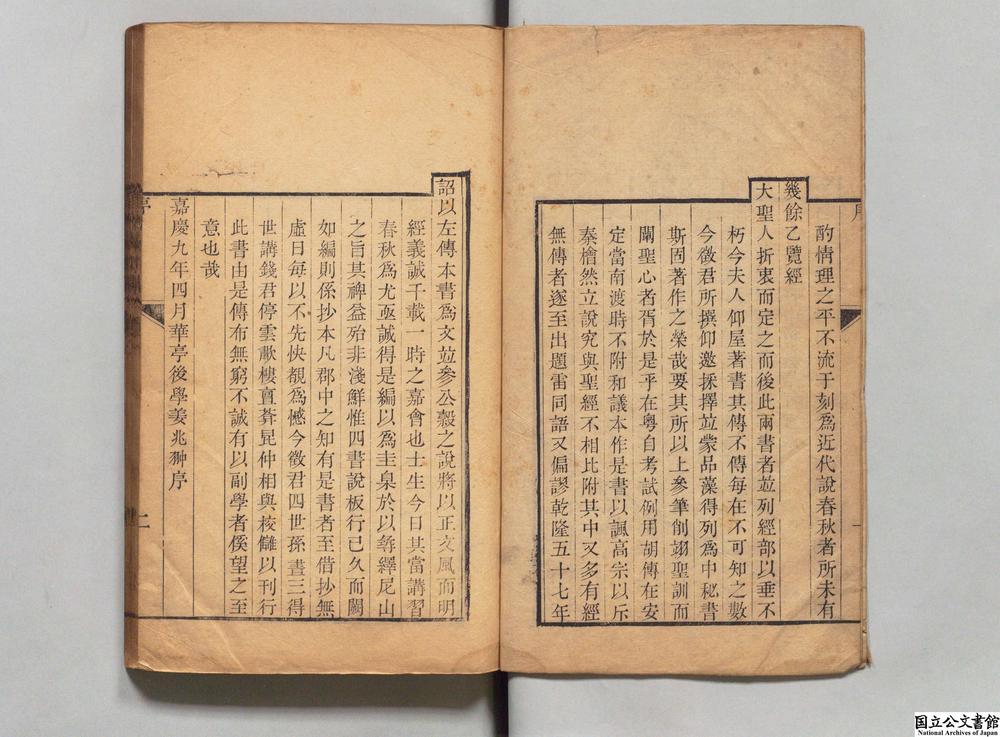 酌情理之平不流于刻爲近代說春秋者所未有
幾餘乙覽經
大聖人折衷而定之而後此兩書者並列經部以垂不
朽今夫人仰屋著書其傳不傳每在不可知之數
今徵君所撰仰邀採擇並蒙品藻得列爲中秘書
斯固著作之榮哉要其所以上參筆削翊聖訓而
闡聖心者胥於是乎在粵自考試例用胡傳在安
定當南渡時不附和議本作是書以諷高宗以斥
秦檜然立說究與聖經不相比附其中又多有經
無傳者遂至出題雷同語又偏謬乾隆五十七年
詔以左傳本書爲文並參公穀之說將以正文風而明
經義誠千載一時之嘉會也士生今日其當講習
春秋爲尤亟誠得是編以爲圭臬於以紬繹尼山
之旨其裨益殆非淺鮮惟四書說板行已久而闕
如編則係抄本凡郡中之知有是書者至借抄無
虛日每以不先快覩爲憾今徵君四世孫晝三得
世講錢君停雲歗樓亶葊昆仲相與校讎以刊行
此書由是傳布無窮不誠有以副學者傒望之至
意也哉
嘉慶九年四月華亭後學姜兆翀序
序
二
国立公文書館
National Archives of Japan